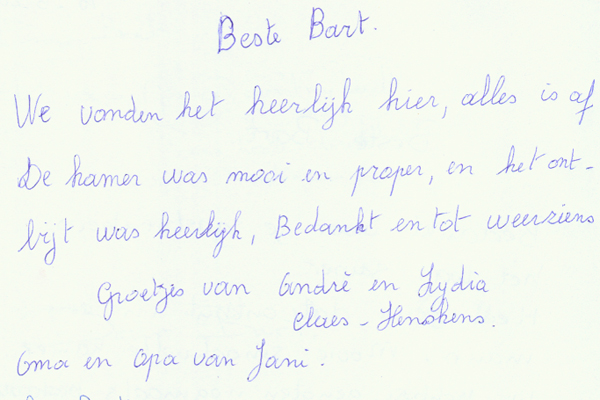 Beste Bart.
We vonden het heerlijk hier, alles is af
De kamer was mooi en proper, en het ont-
bijt was heerlijk, Bedankt en tot weerziens
Groetjes van André en Lydia
Claes - Henskens.
Oma en Opa van Jani.